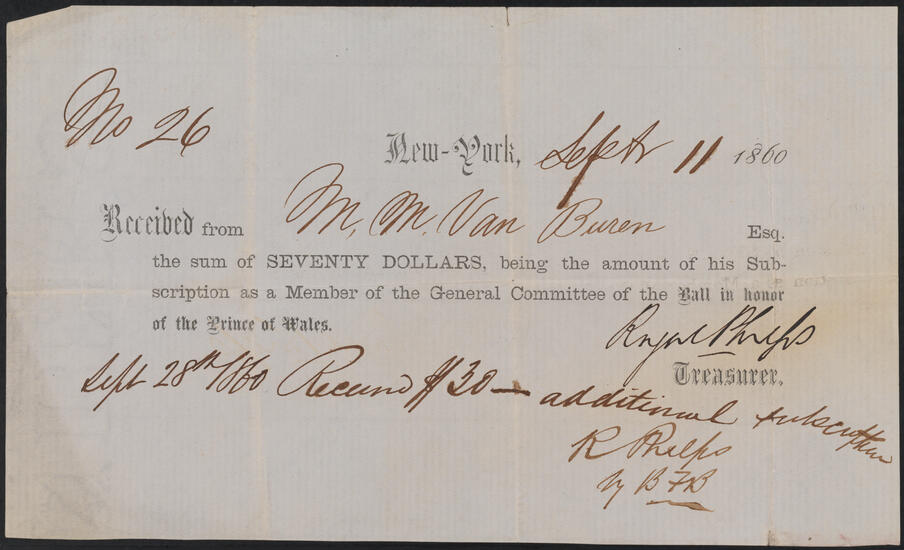 No 26
New-York, Septr 11 1860
Received from M. M. Van Buren Esq.
the sum of SEVENTY DOLLARS, being the amount of his Sub-
scription as a Member of the General Committee of the Ball in honor
of the Prince of Wales.
Royal Phelps
Treasurer.
Sept 28th 1860 Received $30 — additional subscription
R Phelps
by B F B